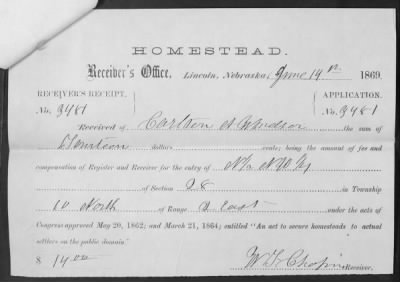 HOMESTEAD.
Receiver's Office, Lincoln, Nebraska, June 14th 1869.
RECEIVER'S RECEIPT, APPLICATION,
No. 3481 No. 3481
Received of Carlton the sum of
Fourteen dollars cents; being the amount of fee and
compensation of Register and Receiver for the entry of N/2 N.W./4
of Section 28 in Township
10 North of Range 2 East under the acts of
Congress approved May 20, 1862; and March 21, 1864; entitled "An act to secure homesteads to actual
settlers on the public domain."
$ 14.00 Chapin Receiver.